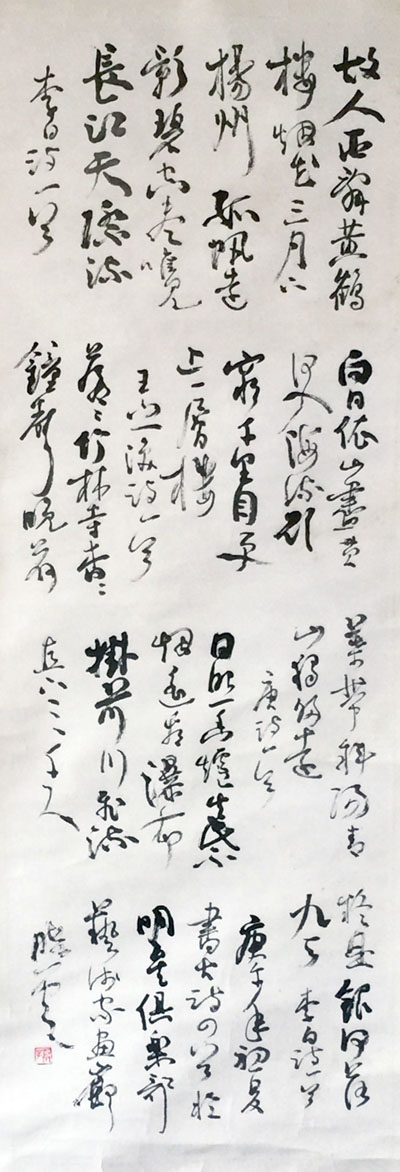 故人西辭黃鶴
樓烟花三月下
楊州 孤帆遠
影碧空盡唯見
長江天際流
李白詩一首
白日依山盡黃
河入海流欲
窮千里目更
上一層樓
王之渙詩一首
蒼〻竹林寺杳〻
鐘聲晚荷
笠帶斜陽青
山獨歸遠
唐詩一首
日照香爐生紫
烟遙看瀑布
掛前川飛流
直下三千尺
疑是銀河落
九天 李白詩一首
庚午年初夏
書古詩四首於
俱樂部
藝術家畫廊